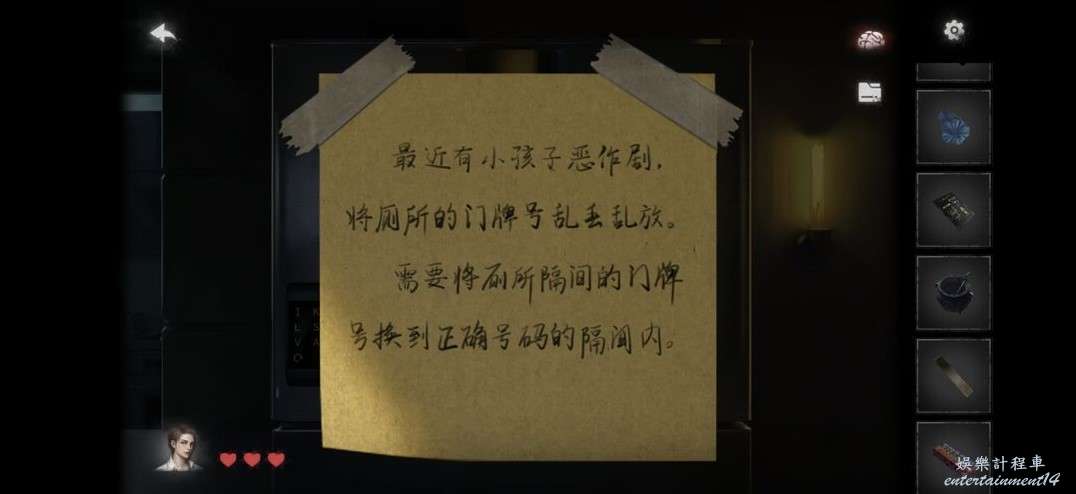 最近有小孩子恶作剧，
将厕所的门牌号乱丢乱放。
需要将厕所隔间的门牌
号换到正确号码的隔间内。
娛樂計程車
entertainment14